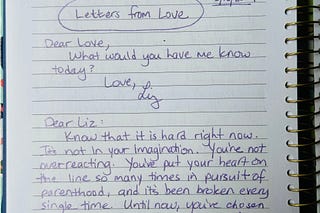 Letters from Love
Dear Love,
What would you have me know
today?
Love,
Liz
Dear Liz:
Know that it is hard right now.
It's not in your imagination. You're not
overreacting. You've put your heart on
the line so many times in pursuit of
parenthood, and it's been broken every
single time. Until now, you've chosen